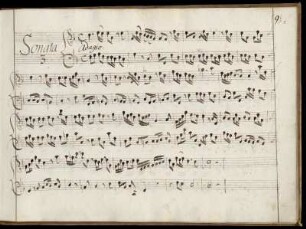 Sonata
Adagio
3